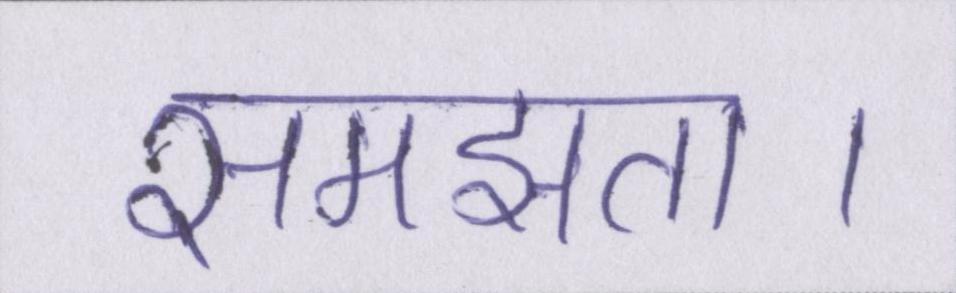 समझता ।